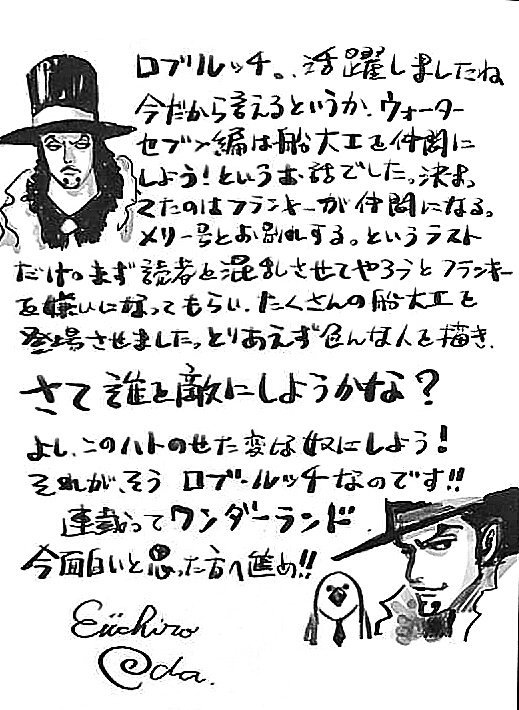 ロブ・ルッチ。活躍しましたね
今だから言えるというか、ウォーター
セブン編は船大工を仲間に
しよう!というお話でした。決まっ
てたのはフランキーが仲間になる。
メリー号とお別れする。というラスト
だけ。まず読者を混乱させてやろうとフランキー
を嫌いになってもらい、たくさんの船大工を
登場させました。とりあえず色んな人を描き、
さて誰を敵にしようかな?
よし、このハトのせた変な奴にしよう!
それが、そう ロブ・ルッチなのです!!
連載ってワンダーランド。
今面白いと思った方へ進め!!
Eiichiro
Oda.